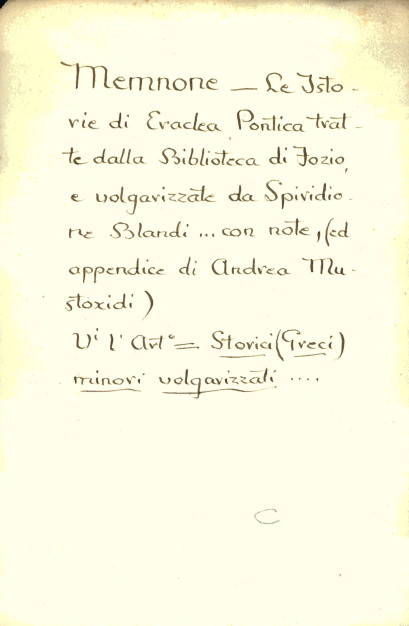 Memnone — Le Isto-
rie di Eraclea Pontica trat-
te dalla Biblioteca di Fozio,
e volgarizzate da Spiridio-
ne Blandi ... con note, (ed
appendice di Andrea Mu-
stoxidi)
Vi l'Arto = Storici (Greci)
minori volgarizzati ....
C